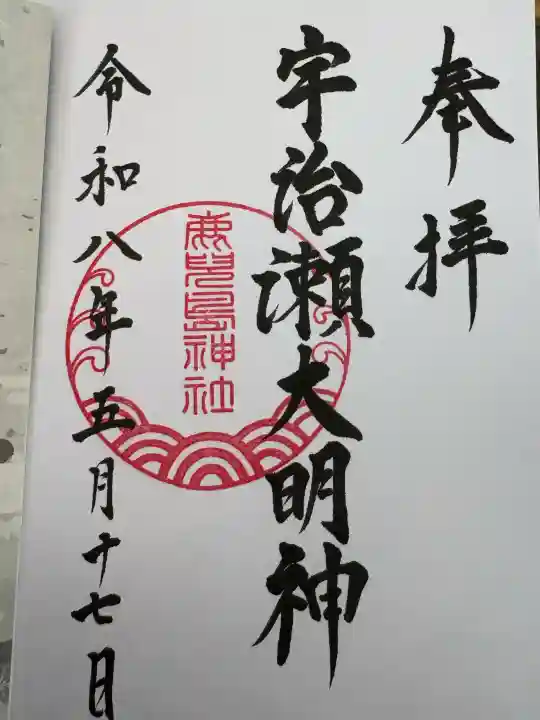 奉拝
宇治瀬大明神
鹿兒島神社
令和八年五月十七日